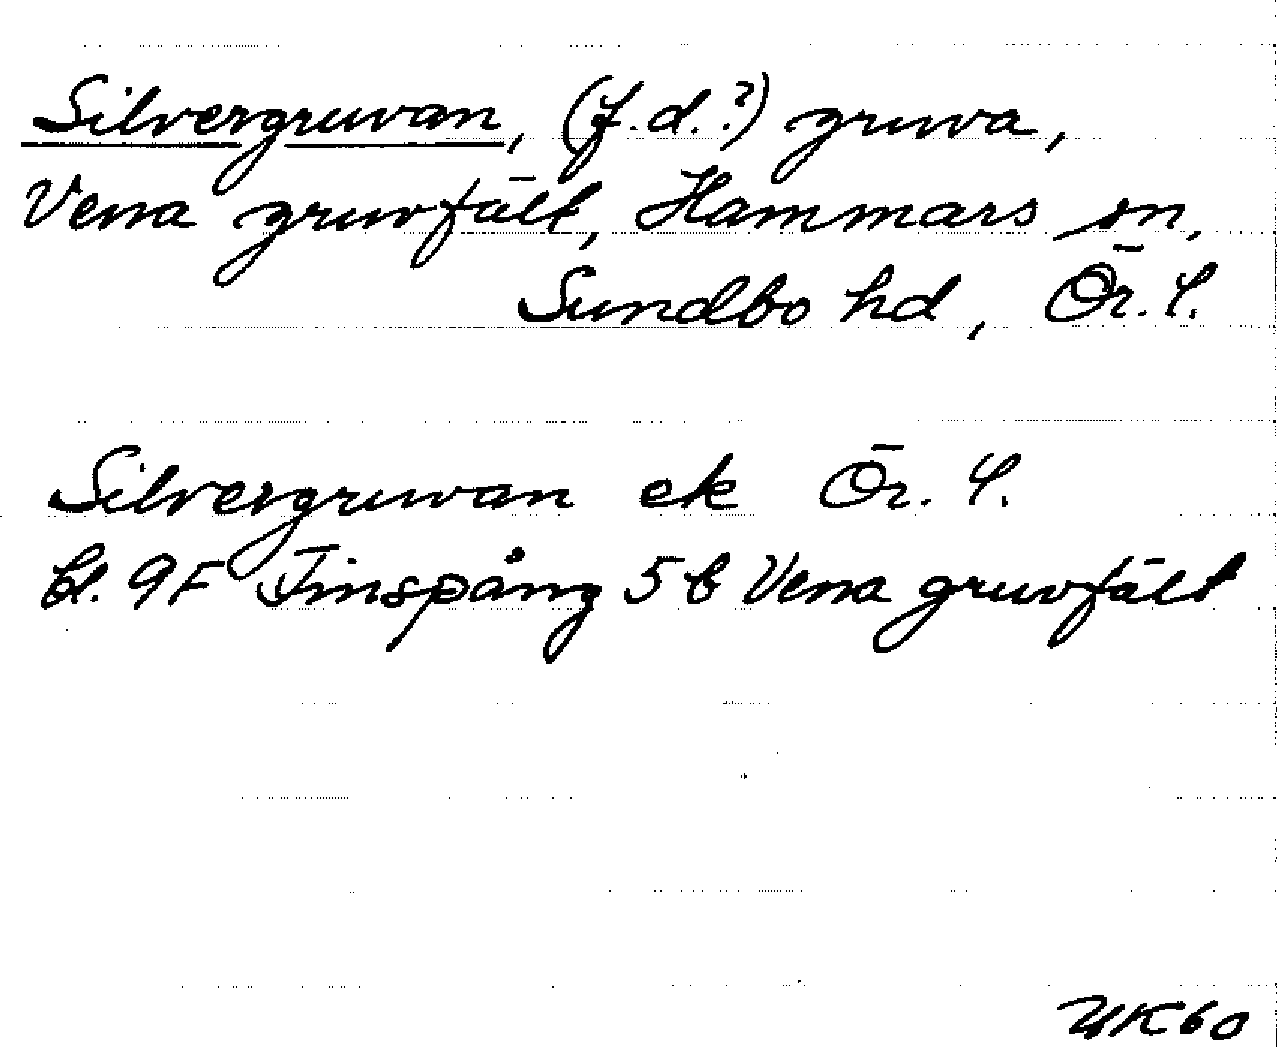 Silvergruvan, (f.d.?) gruva,
Vena gruvfält, Hammars sn,
Sundbo hd, Ör. l.
Silvergruvan ek Ör. l.
bl. 9F Finspång 5b Vena gruvfält
60